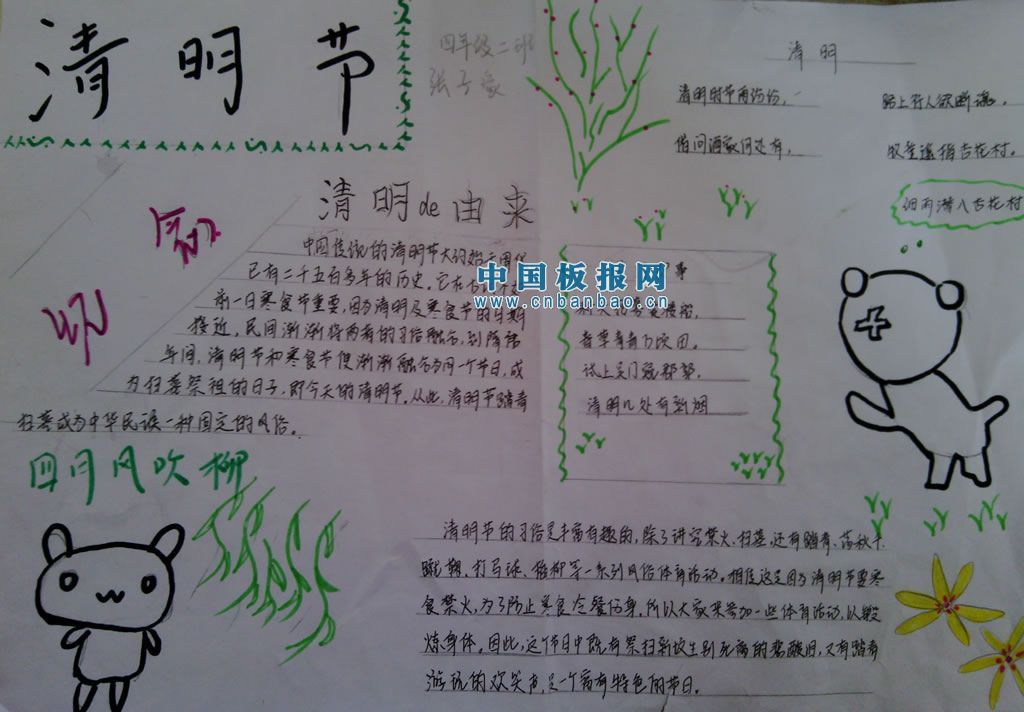 清明节
四年级二班
张子豪
清明
清明时节雨纷纷，
路上行人欲断魂。
借问酒家何处有，
牧童遥指杏花村。
细雨潜入杏花村
清明de由来
中国传统的清明节大约始于周代
已有二千五百多年的历史。它在
前一日寒食节重要，因为清明及寒食节的日期
接近，民间渐渐将两者的习俗融合，到隋唐
年间，清明节和寒食节便渐渐融合为同一个节日，成
为扫墓祭祖的日子，即今天的清明节。从此，清明节踏青
扫墓成为中华民族一种固定的风俗。
中国板报网
www.cnbanbao.cn
春草青青万顷田。
试上吴门窥郡郭，
清明几处有新烟
四月风吹柳
清明节的习俗是丰富有趣的，除了讲究禁火、扫墓，还有踏青、荡秋千
蹴鞠、打马球、插柳等一系列风俗体育活动。相传这是因为清明节要寒
食禁火，为了防止寒食冷餐伤身，所以大家来参加一些体育活动，以锻
炼身体。因此，这个节日中既有祭扫新坟生别死离的悲酸泪，又有踏青
游玩的欢笑声，是一个富有特色的节日。